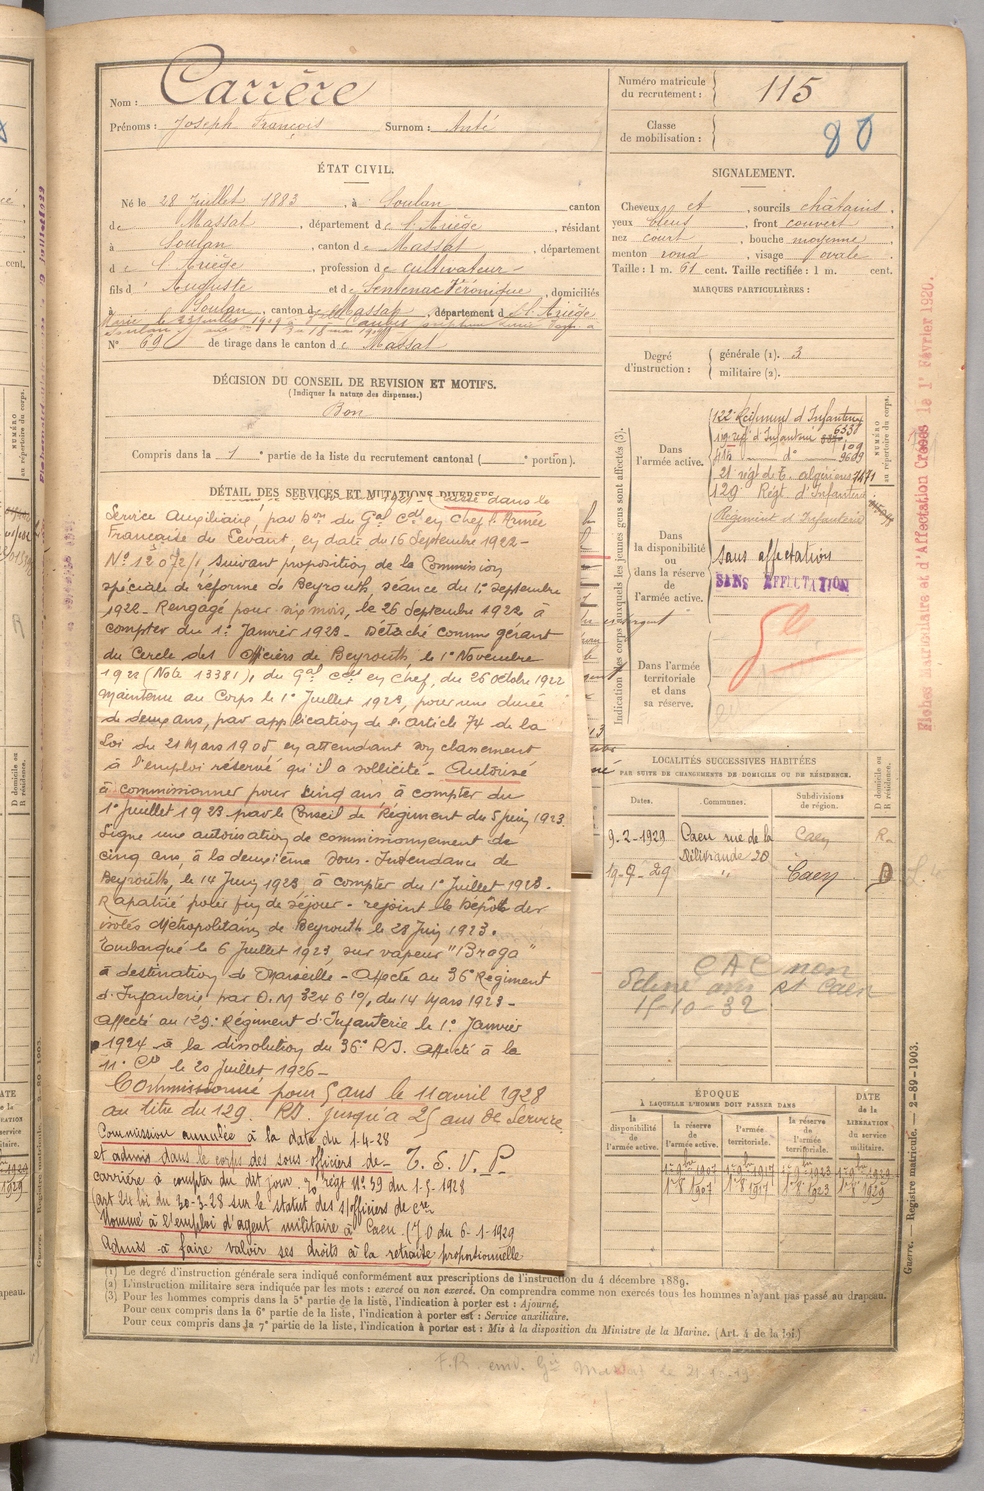 Nom : Carrère
Prénoms : Joseph François Surnom : Anté
ÉTAT CIVIL.
Né le 28 Juillet 1883, à Soulan canton
de Massat, département de l'Ariège, résidant
à Soulan, canton de Massat, département
de l'Ariège, profession de cultivateur
fils d' Auguste et de Sentenac Véronique, domiciliés
à Soulan, canton de Massat, département de l'Ariège
N° 69 de tirage dans le canton de Massat
DÉCISION DU CONSEIL DE REVISION ET MOTIFS.
(Indiquer la nature des dispenses.)
Bon
Compris dans la 1e partie de la liste du recrutement cantonal ( portion).
DÉTAIL DES SERVICES ET MUTATIONS DIVERSES
dans le
Service Auxiliaire, par Don du Gal Cdt en Chef l'Armée
Française du Levant, en date du 16 Septembre 1922-
N° 12.072/1, suivant proposition de la Commission
spéciale de réforme de Beyrouth, séance du 1er Septembre
1922- Rengagé pour six mois, le 26 Septembre 1922 à
compter du 1er Janvier 1923- Détaché comme gérant
du Cercle des Officiers de Beyrouth le 1er Novembre
1922 (Note 13381), du Gal Cdt en Chef, du 26 octobre 1922
Maintenu au Corps le 1er Juillet 1923, pour une durée
de deux ans, par application de l'article 74 de la
Loi du 21 Mars 1905 en attendant son classement
à l'emploi réservé qu'il a sollicité- Autorisé
à commissionner pour cinq ans à compter du
1er Juillet 1923 par le Conseil de Régiment du 5 Juin 1923.
Signe une autorisation de commissionnement de
cinq ans, à la deuxième Sous-Intendance de
Beyrouth, le 14 Juin 1923 à compter du 1er Juillet 1923.
Rapatrié pour fin de séjour- rejoint le Dépôt des
isolés Métropolitains de Beyrouth le 28 Juin 1923.
Embarqué le 6 Juillet 1923, sur vapeur "Braga"
à destination de Marseille- Affecté au 36e Régiment
d'Infanterie par D.M 324 6 10/, du 14 Mars 1923-
Affecté au 129e Régiment d'Infanterie le 1er Janvier
1924 à la dissolution du 36e R.I. Affecté à la
11e Cie le 20 Juillet 1926-
Commissionné pour 5 ans le 11 avril 1928
au titre du 129. RI. jusqu'à 25 ans de Service.
Commission annulée à la date du 1-4-28
et admis dans le corps des sous-officiers de- T. S. V. P.
carrière à compter du dit jour. régt N° 39 du 1-5-1928
(art 24 loi du 30-3-28 sur le statut des s/officiers de cre
Nommé à l'emploi d'agent militaire à Caen (JO du 6-1-1929
Admis à faire valoir ses droits à la retraite proportionnelle
Numéro matricule
du recrutement : 115
Classe
de mobilisation : 80
SIGNALEMENT.
Cheveux et sourcils châtains,
yeux bleus, front couvert
nez court, bouche moyenne
menton rond, visage ovale
Taille : 1 m. 61 cent. Taille rectifiée : 1 m. cent.
MARQUES PARTICULIÈRES :
Degré
d'instruction :
générale (1). 3
militaire (2).
NUMÉRO
au répertoire du corps.
Indication des corps auxquels les jeunes gens sont affectés (3).
Dans
l'armée active.
122e Régiment d'Infanterie
6338
109
416 do 9689
21e régt de T. algériens 7471
129e Régt d'Infanterie
Dans
la disponibilité
ou
dans la réserve
de
l'armée active.
Régiment d'Infanterie
Sans affectation
SANS AFFECTATION
Dans l'armée
territoriale et
dans sa
réserve.
LOCALITÉS SUCCESSIVES HABITÉES
PAR SUITE DE CHANGEMENTS DE DOMICILE OU DE RÉSIDENCE.
Dates. Communes. Subdivisions
de région.
D domicile ou
R résidence.
9-2-1929 Caen rue de la Caen R.
Délivrande 20
19-9-29 " Caen D
CAC non
15-10-32
ÉPOQUE
À LAQUELLE L'HOMME DOIT PASSER DANS
la
disponibilité
de
l'armée active.
la
réserve
de
l'armée active.
l'armée
territoriale.
la
réserve
de
l'armée
territoriale.
DATE
de la
LIBÉRATION
du
service
militaire.
1er 8 1907 1er 8 1917 1er 8 1923 1er 8 1929
(1) Le degré d'instruction générale sera indiqué conformément aux prescriptions de l'instruction du 4 décembre 1889.
(2) L'instruction militaire sera indiquée par les mots : exercé ou non exercé. On comprendra comme non exercés tous les hommes n'ayant pas passé au drapeau.
(3) Pour les hommes compris dans la 5e partie de la liste, l'indication à porter est : Ajourné.
Pour ceux compris dans la 6e partie de la liste, l'indication à porter est : Service auxiliaire.
Pour ceux compris dans la 7e partie de la liste, l'indication à porter est : Mis à la disposition du Ministre de la Marine. (Art. 4 de la loi.)
Guerre. — Registre matricule. — 2-89-1903.
Fiches matriculaire et d'Affectation Créées le 1er Février 1920.